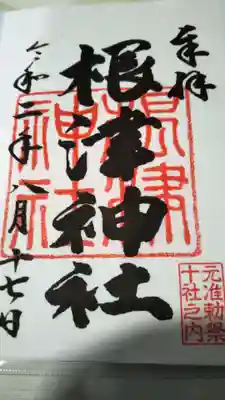 奉拝
根津神社
根津神社
令和二年八月十七日
元准勅祭
十社之内